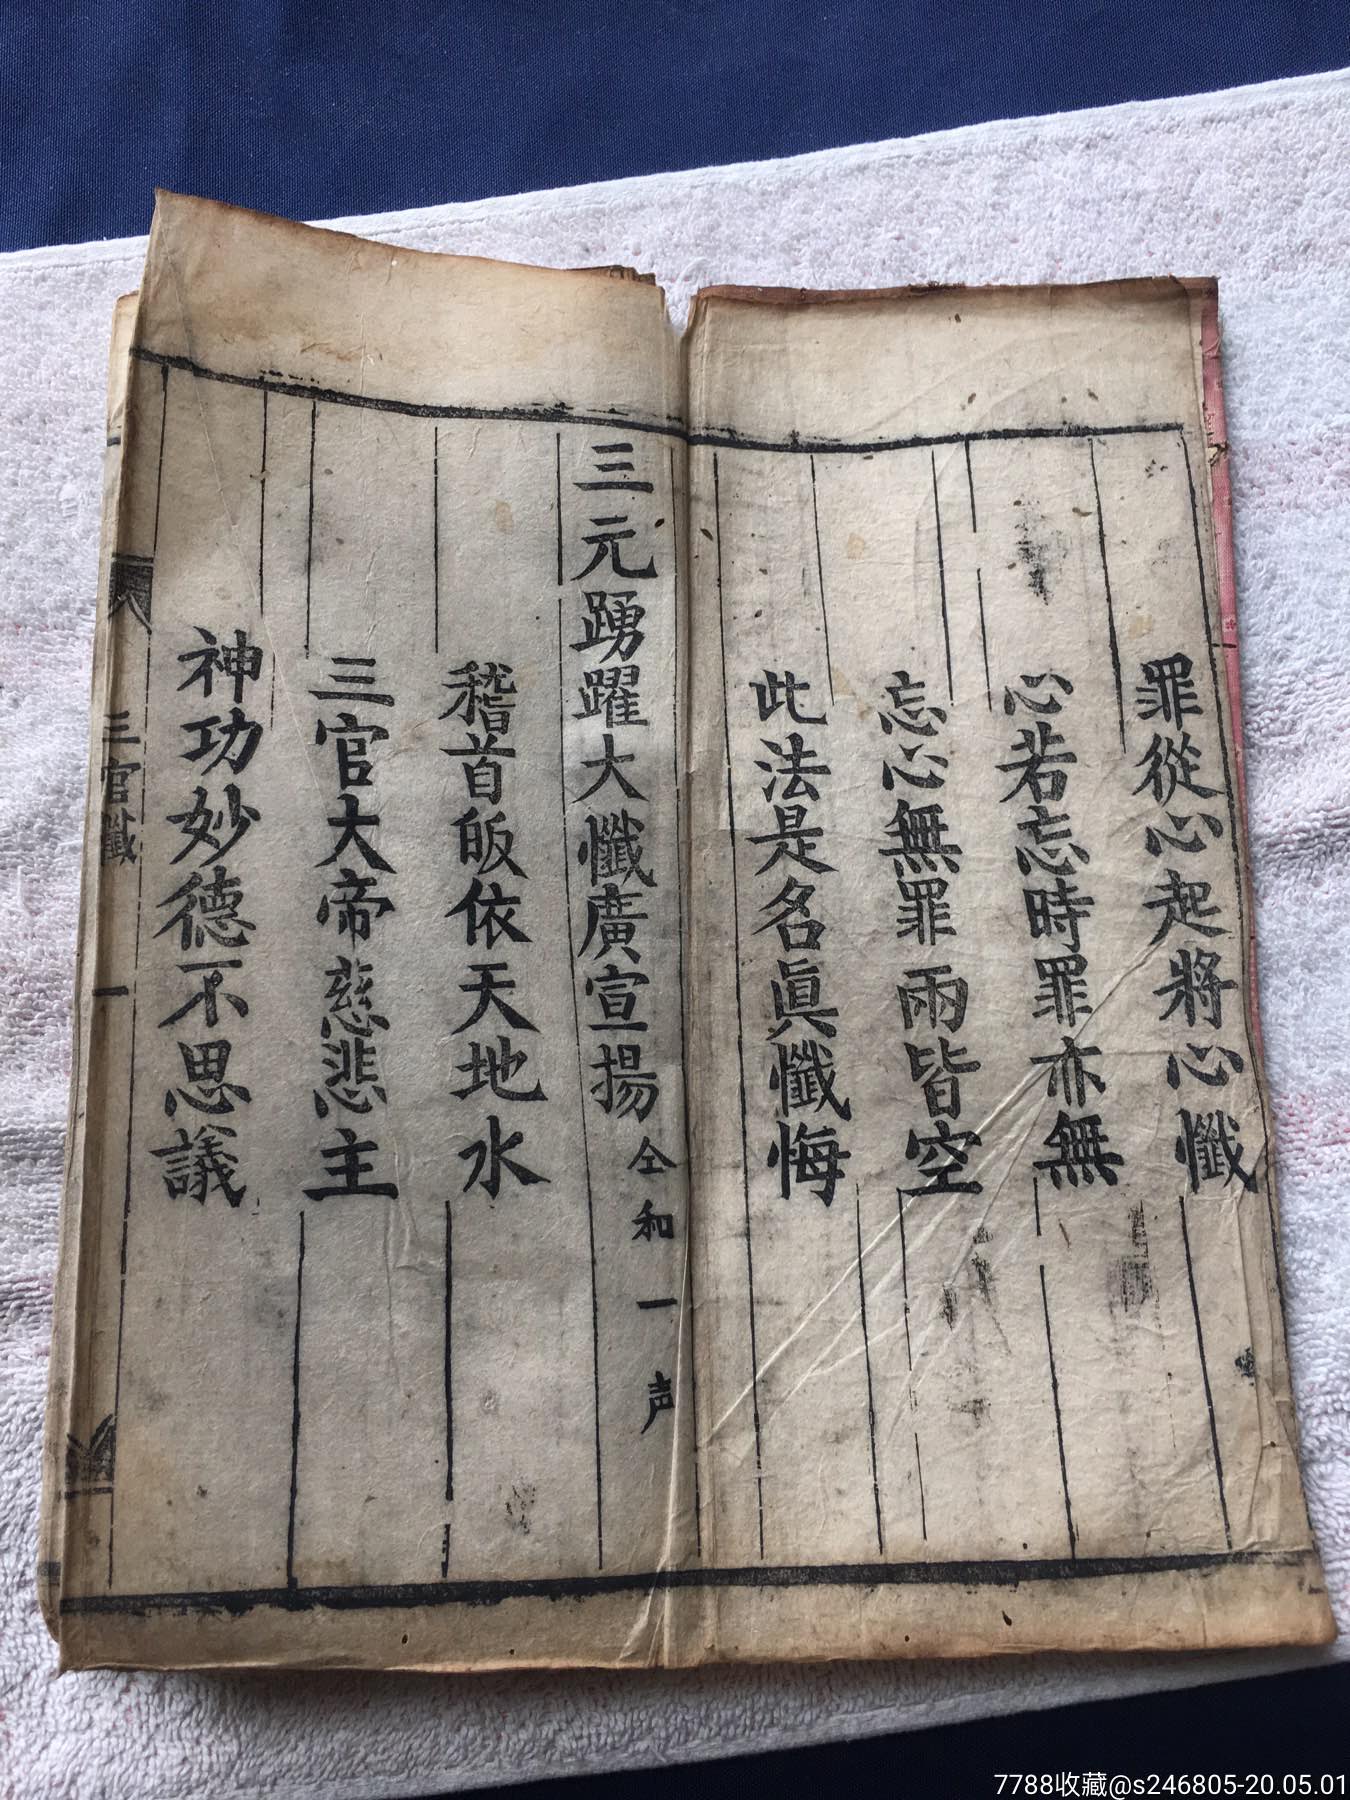 罪從心起將心懺
心若忘時罪亦無
忘心無罪兩皆空
此法是名眞懺悔
三元踴躍大懺廣宣揚 仝和一声
稽首皈依天地水
三官大帝慈悲主
神功妙德不思議
三官懺 一
7788收藏@s246805-20.05.01